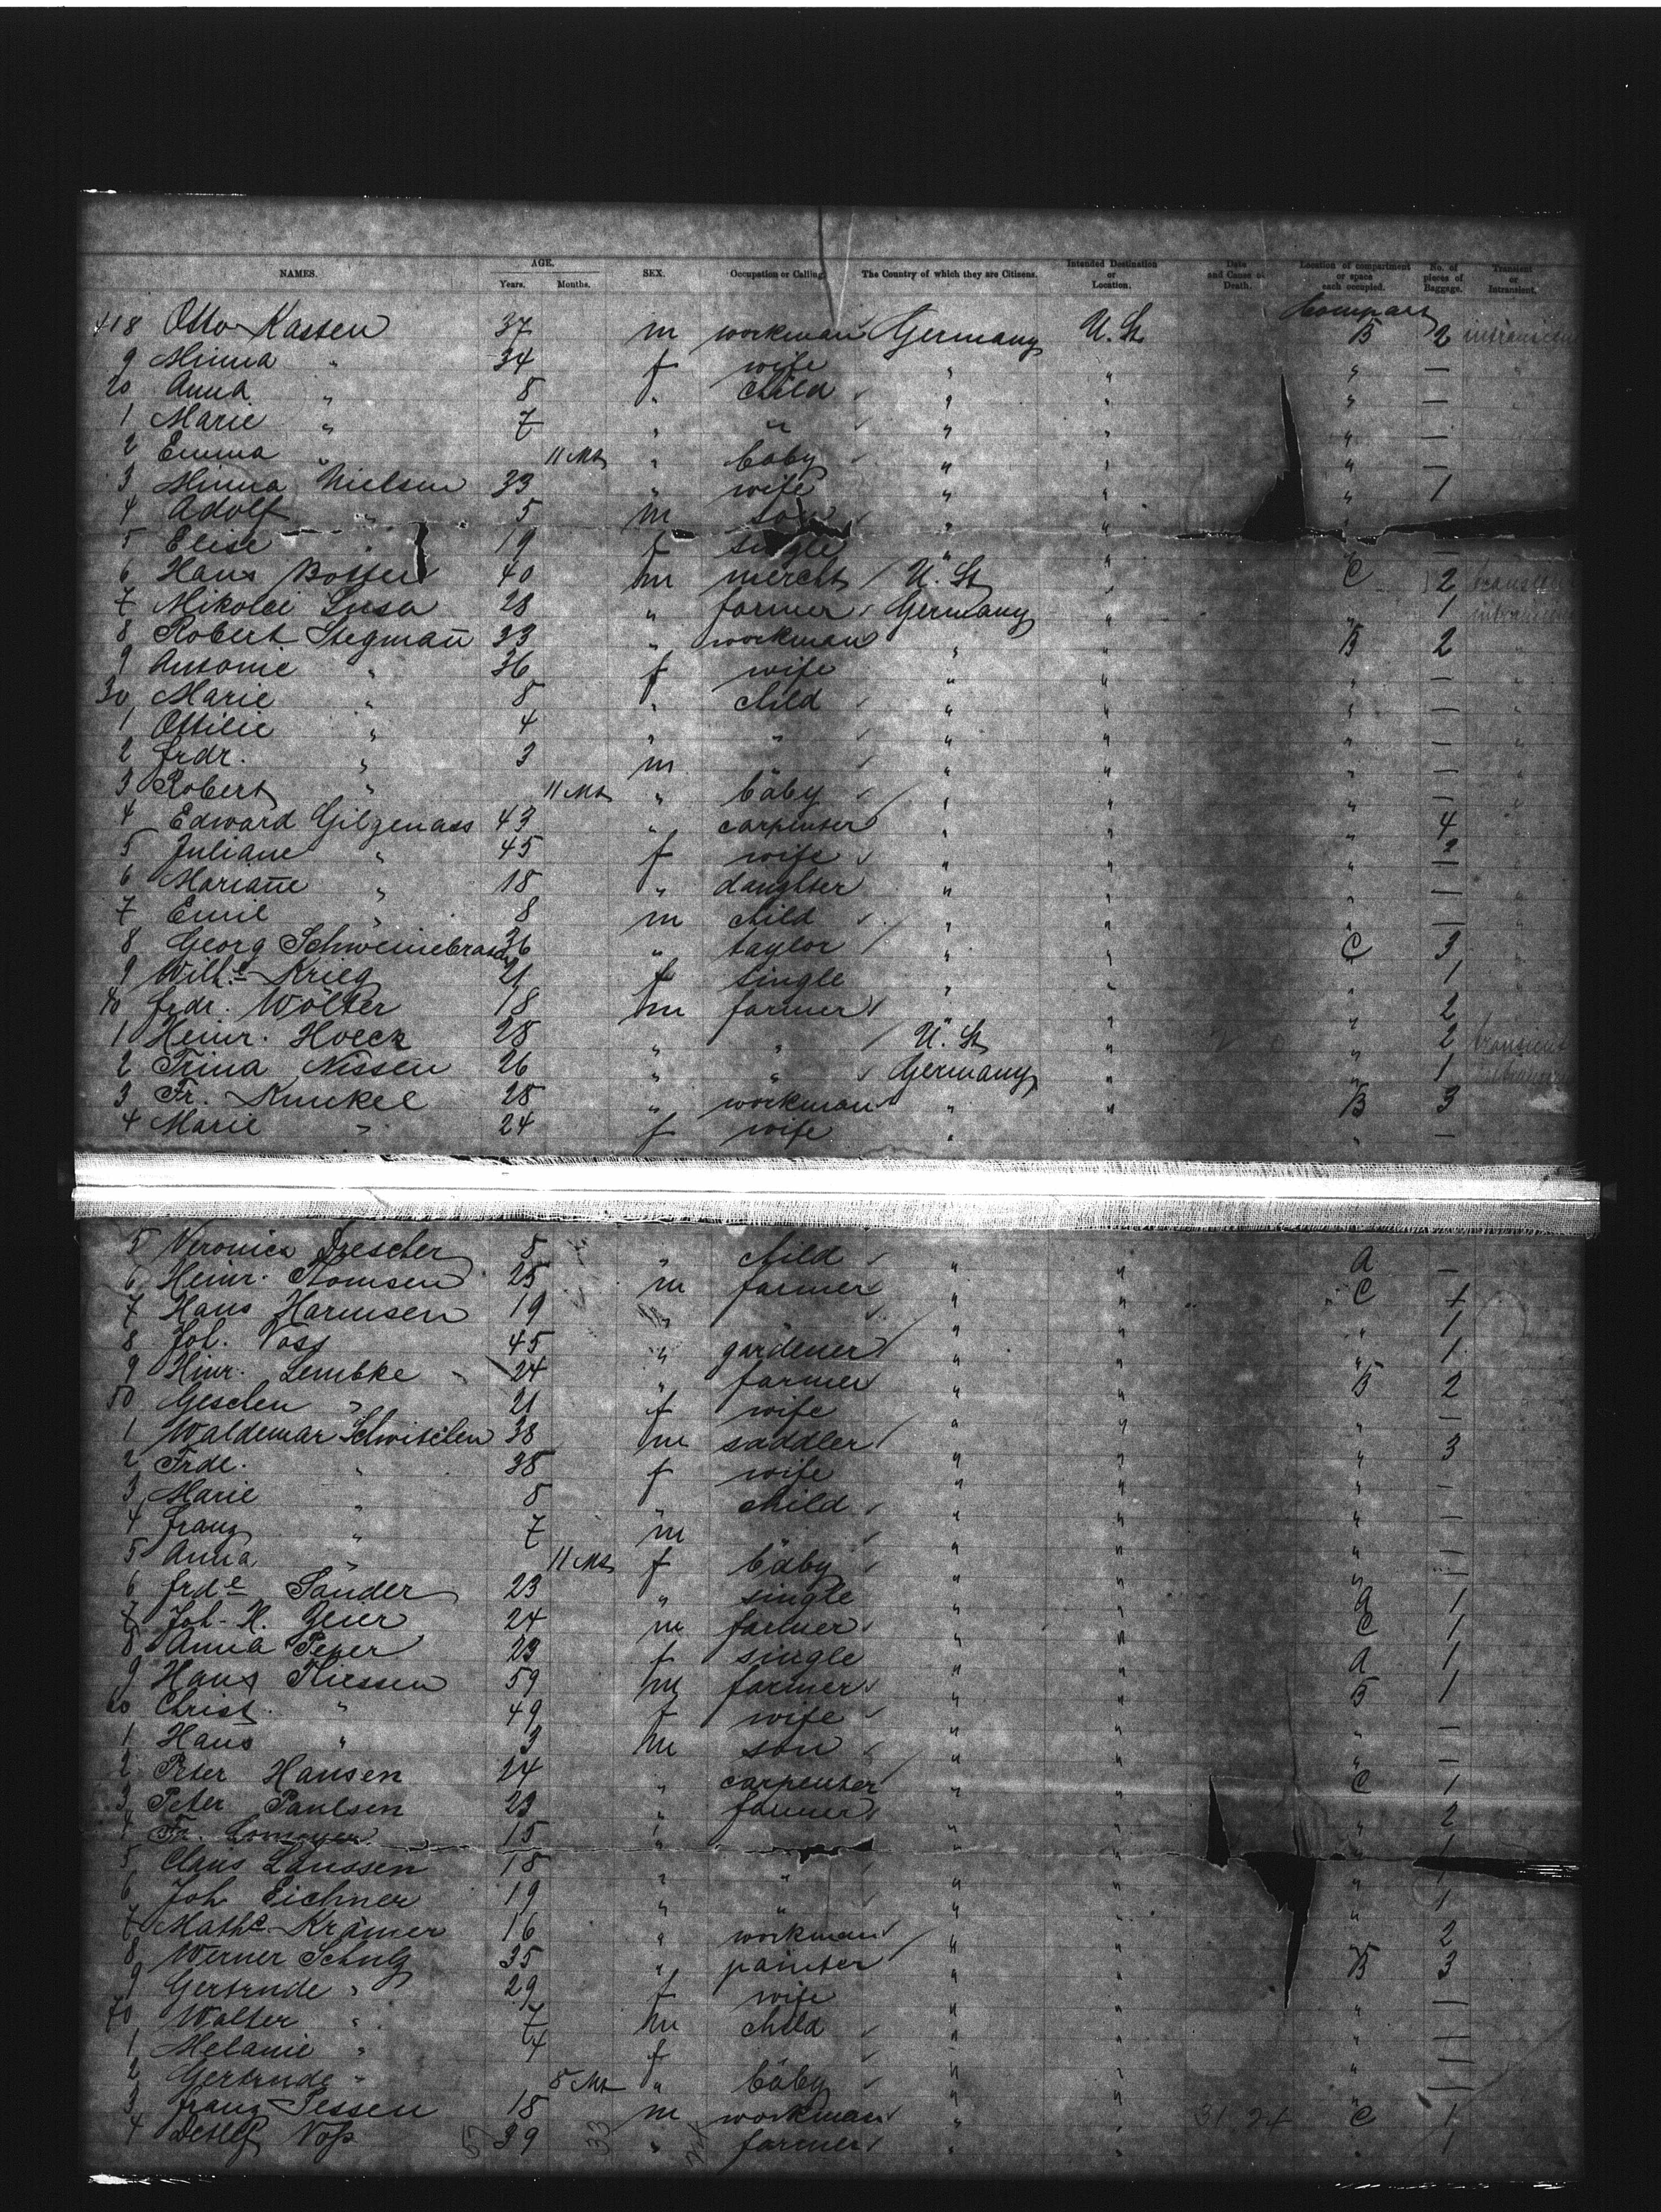 NAMES. AGE. Years. Months. SEX. Occupation or Calling. The Country of which they are Citizens. Intended Destination or Location. Date and Cause of Death. Location of compartment or space each occupied. No. of pieces of Baggage. Transient or Intransient.
Compart
418 Otto Kassen 37 m workman Germany U. St. B 2
9 Minna " 34 f wife " " " —
20 Anna " 8 " child " " " —
1 Marie " 7 " " " " " —
2 Emma " 11 Mts " baby " " " —
3 Minna Nielsen 33 " wife " " " 1
4 Adolf " 5 m son " "
5 Elise " 19 f single " " " —
6 Hans 40 m mercht U. St. " C 2 transient
7 Nikolai 28 " farmer Germany " " 1
8 Robert Stegman̄ 33 " workman " " B 2 "
9 Antonie " 36 f wife " " " — "
30 Marie " 8 " child " " " — "
1 Ottilie " 4 " " " " " — "
2 Frdr. " 3 m " " " " — "
3 Robert " 11 Mts " baby " " " — "
4 Edward Gilgenass 43 " carpenter " " " 4 "
5 Juliane " 45 f wife " " " — "
6 Marian̄e " 18 " daughter " " " — "
7 Emil " 8 m child " " " — "
8 Georg Schweinebraden 36 " taylor " " C 3 "
9 Wilhe Krieg 21 f single " " " 1 "
40 Frdr. Wölter 18 m farmer " " " 2 "
1 Heinr. Hoeck 28 " " U. St. " " 2 transient
2 Trina Nissen 26 " " Germany " " 1
3 Fr. Kunkel 28 " workman " " B 3
4 Marie " 24 f wife " " —
5 Veronica Drescher 5 " child " " A —
6 Heinr. Thomsen 25 m farmer " " C 1
7 Hans Harmsen 19 " " " " " 1
8 Joh. Voss 45 " gardener " " " 1
9 Hinr. Lembke 24 " farmer " " B 2
50 Geschen " 21 f wife " " " —
1 Waldemar Schwischen 38 m saddler " " " 3
2 Frde. " 38 f wife " " " —
3 Marie " 8 " child " " " —
4 Franz " 7 m " " " " —
5 Anna " 11 Mts f baby " " " —
6 Frde Sander 23 " single " " A 1
7 Joh. H. 24 m farmer " " C 1
8 Anna Peper 23 f single " " A 1
9 Hans Thiessen 59 m farmer " " B 1
60 Christ. " 49 f wife " " " —
1 Hans " 3 m son " " " —
2 Peter Hansen 24 " carpenter " " C 1
3 Peter Paulsen 23 " farmer " " " 2
4 Fr. 15 " " " " 1
5 Claus Laussen 18 " " " " " 1
6 Joh Eichner 19 " " " " " 1
7 Mathe Krämer 16 " workman " " " 2
8 Werner Schulz 35 " painter " " B 3
9 Gertrude " 29 f wife " " " —
70 Walter " 7 m child " " " —
1 Melanie " 4 f " " " " —
2 Gertrude " 8 Mts " baby " " " —
3 Franz Jessen 18 m workman " " C 1
4 Detlef Voss 39 " farmer " " " 1